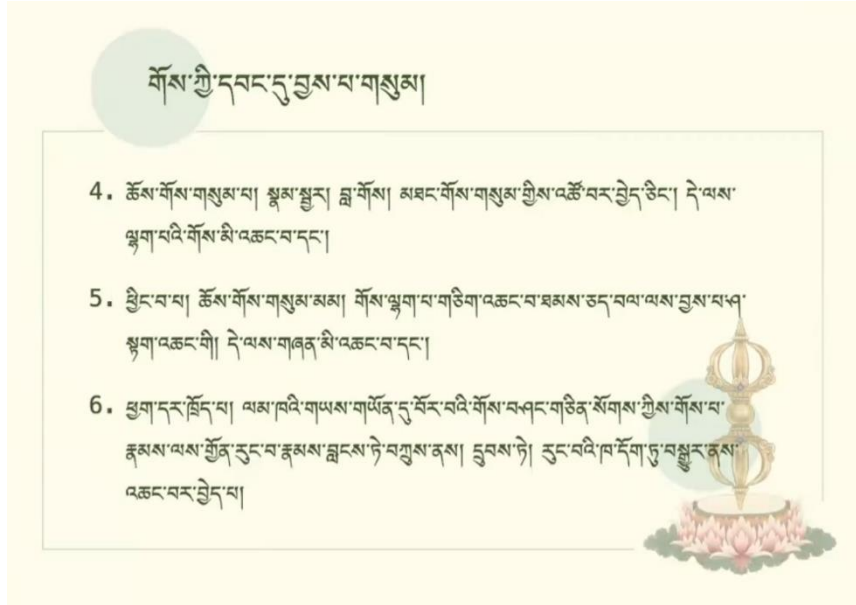 གོས་ཀྱི་དབང་དུ་བྱས་པ་གསུམ།
4. ཆོས་གོས་གསུམ་པ། སྣམ་སྦྱར། བླ་གོས། མཐང་གོས་གསུམ་གྱིས་འཚོ་བར་བྱེད་ཅིང་། དེ་ལས་
ལྷག་པའི་གོས་མི་འཆང་བ་དང་།
5. ཕྱིང་བ་པ། ཆོས་གོས་གསུམ་མམ། གོས་ལྷག་པ་གཅིག་འཆང་བ་ཐམས་ཅད་བལ་ལས་བྱས་པ་ཤ་
སྟག་འཆང་གི། དེ་ལས་གཞན་མི་འཆང་བ་དང་།
6. ཕྱག་དར་ཁྲོད་པ། ལམ་ཁའི་གཡས་གཡོན་དུ་བོར་བའི་གོས་བཤང་གཅིན་སོགས་ཀྱིས་གོས་པ་
རྣམས་ལས་གྱོན་རུང་བ་རྣམས་བླངས་ཏེ་བཀྲུས་ནས། དྲུབས་ཏེ། རུང་བའི་ཁ་དོག་ཏུ་བསྒྱུར་ནས་
འཆང་བར་བྱེད་པ།